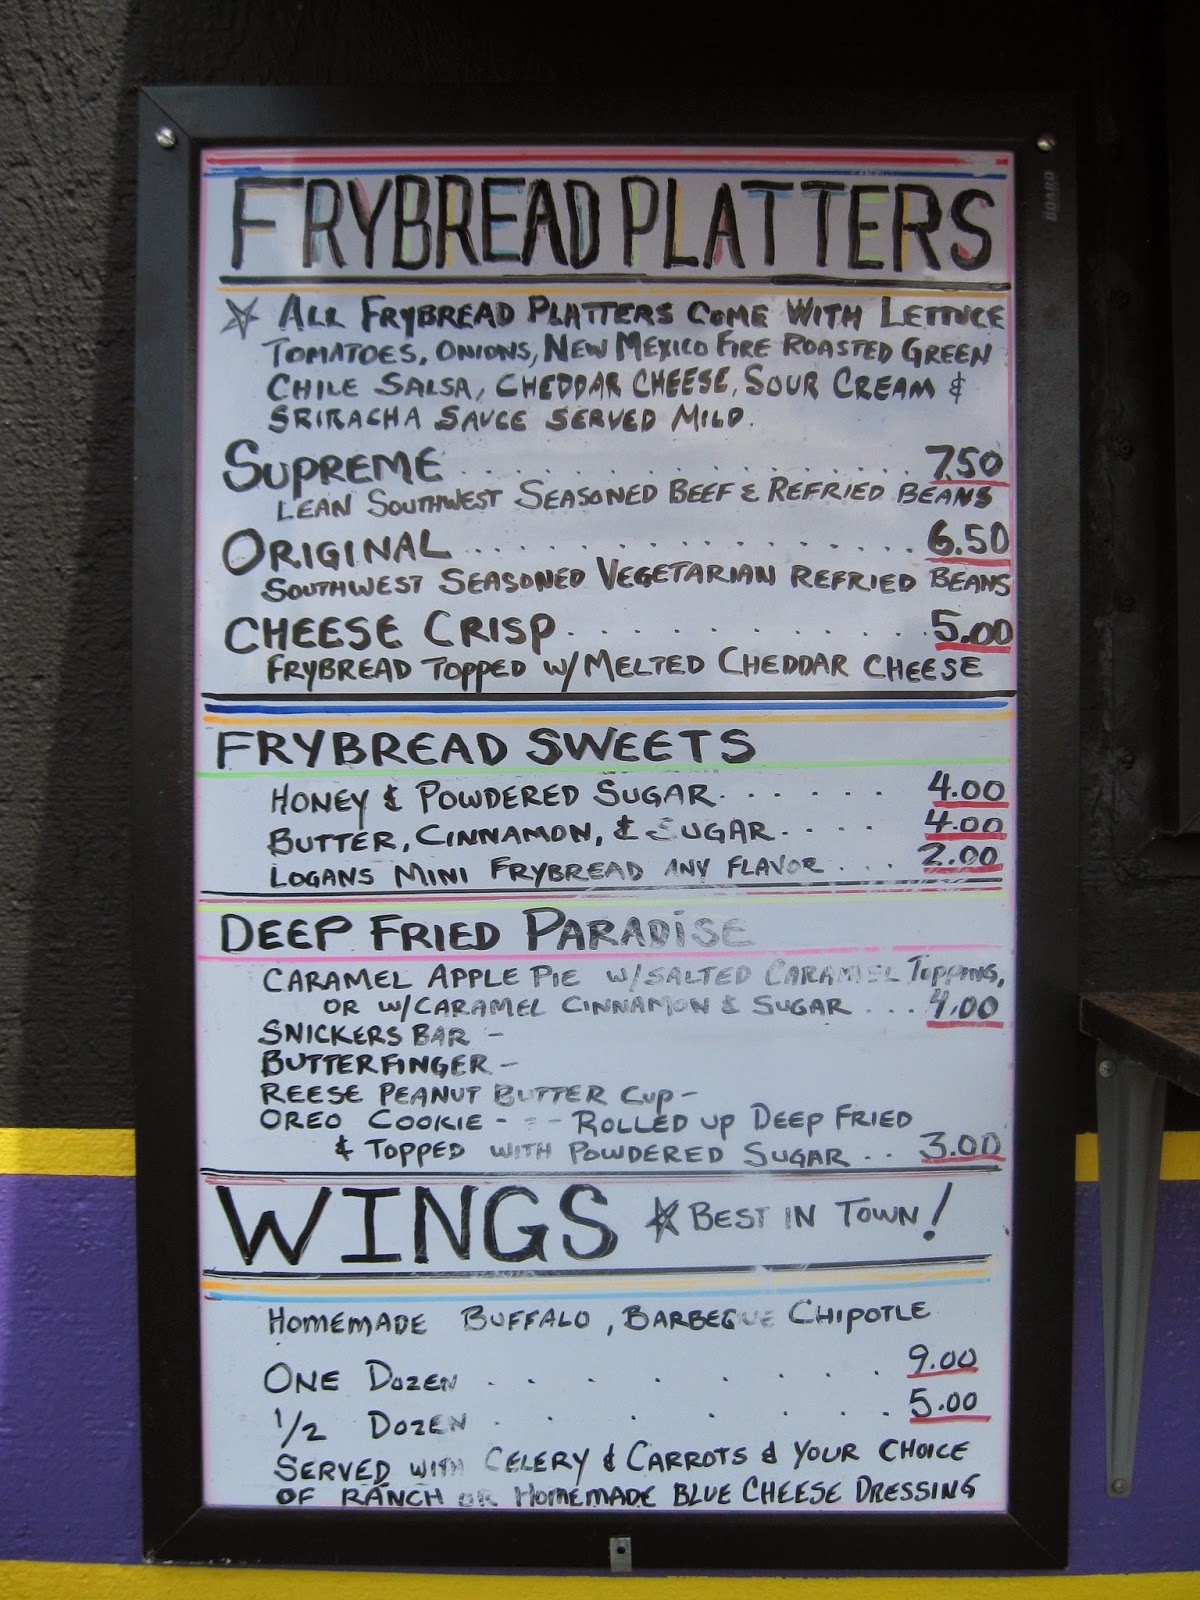 BOARD
FRYBREAD PLATTERS
ALL FRYBREAD PLATTERS COME WITH LETTUCE
TOMATOES, ONIONS, NEW MEXICO FIRE ROASTED GREEN
CHILE SALSA, CHEDDAR CHEESE, SOUR CREAM &
SRIRACHA SAUCE SERVED MILD.
SUPREME . . . . . . . . . . . . . . . . 7.50
LEAN SOUTHWEST SEASONED BEEF & REFRIED BEANS
ORIGINAL . . . . . . . . . . . . . . . 6.50
SOUTHWEST SEASONED VEGETARIAN REFRIED BEANS
CHEESE CRISP . . . . . . . . . . . 5.00
FRYBREAD TOPPED W/MELTED CHEDDAR CHEESE
FRYBREAD SWEETS
HONEY & POWDERED SUGAR . . . . . . 4.00
BUTTER, CINNAMON, & SUGAR . . . . 4.00
LOGANS MINI FRYBREAD ANY FLAVOR . . . 2.00
DEEP FRIED PARADISE
CARAMEL APPLE PIE W/SALTED CARAMEL TOPPING,
OR W/CARAMEL CINNAMON & SUGAR . . . 4.00
SNICKERS BAR -
BUTTERFINGER -
REESE PEANUT BUTTER CUP -
OREO COOKIE - - - ROLLED UP DEEP FRIED
& TOPPED WITH POWDERED SUGAR . . 3.00
WINGS BEST IN TOWN!
HOMEMADE BUFFALO, BARBEQUE CHIPOTLE
ONE DOZEN . . . . . . . . 9.00
1/2 DOZEN . . . . . . . 5.00
SERVED WITH CELERY & CARROTS & YOUR CHOICE
OF RANCH OR HOMEMADE BLUE CHEESE DRESSING